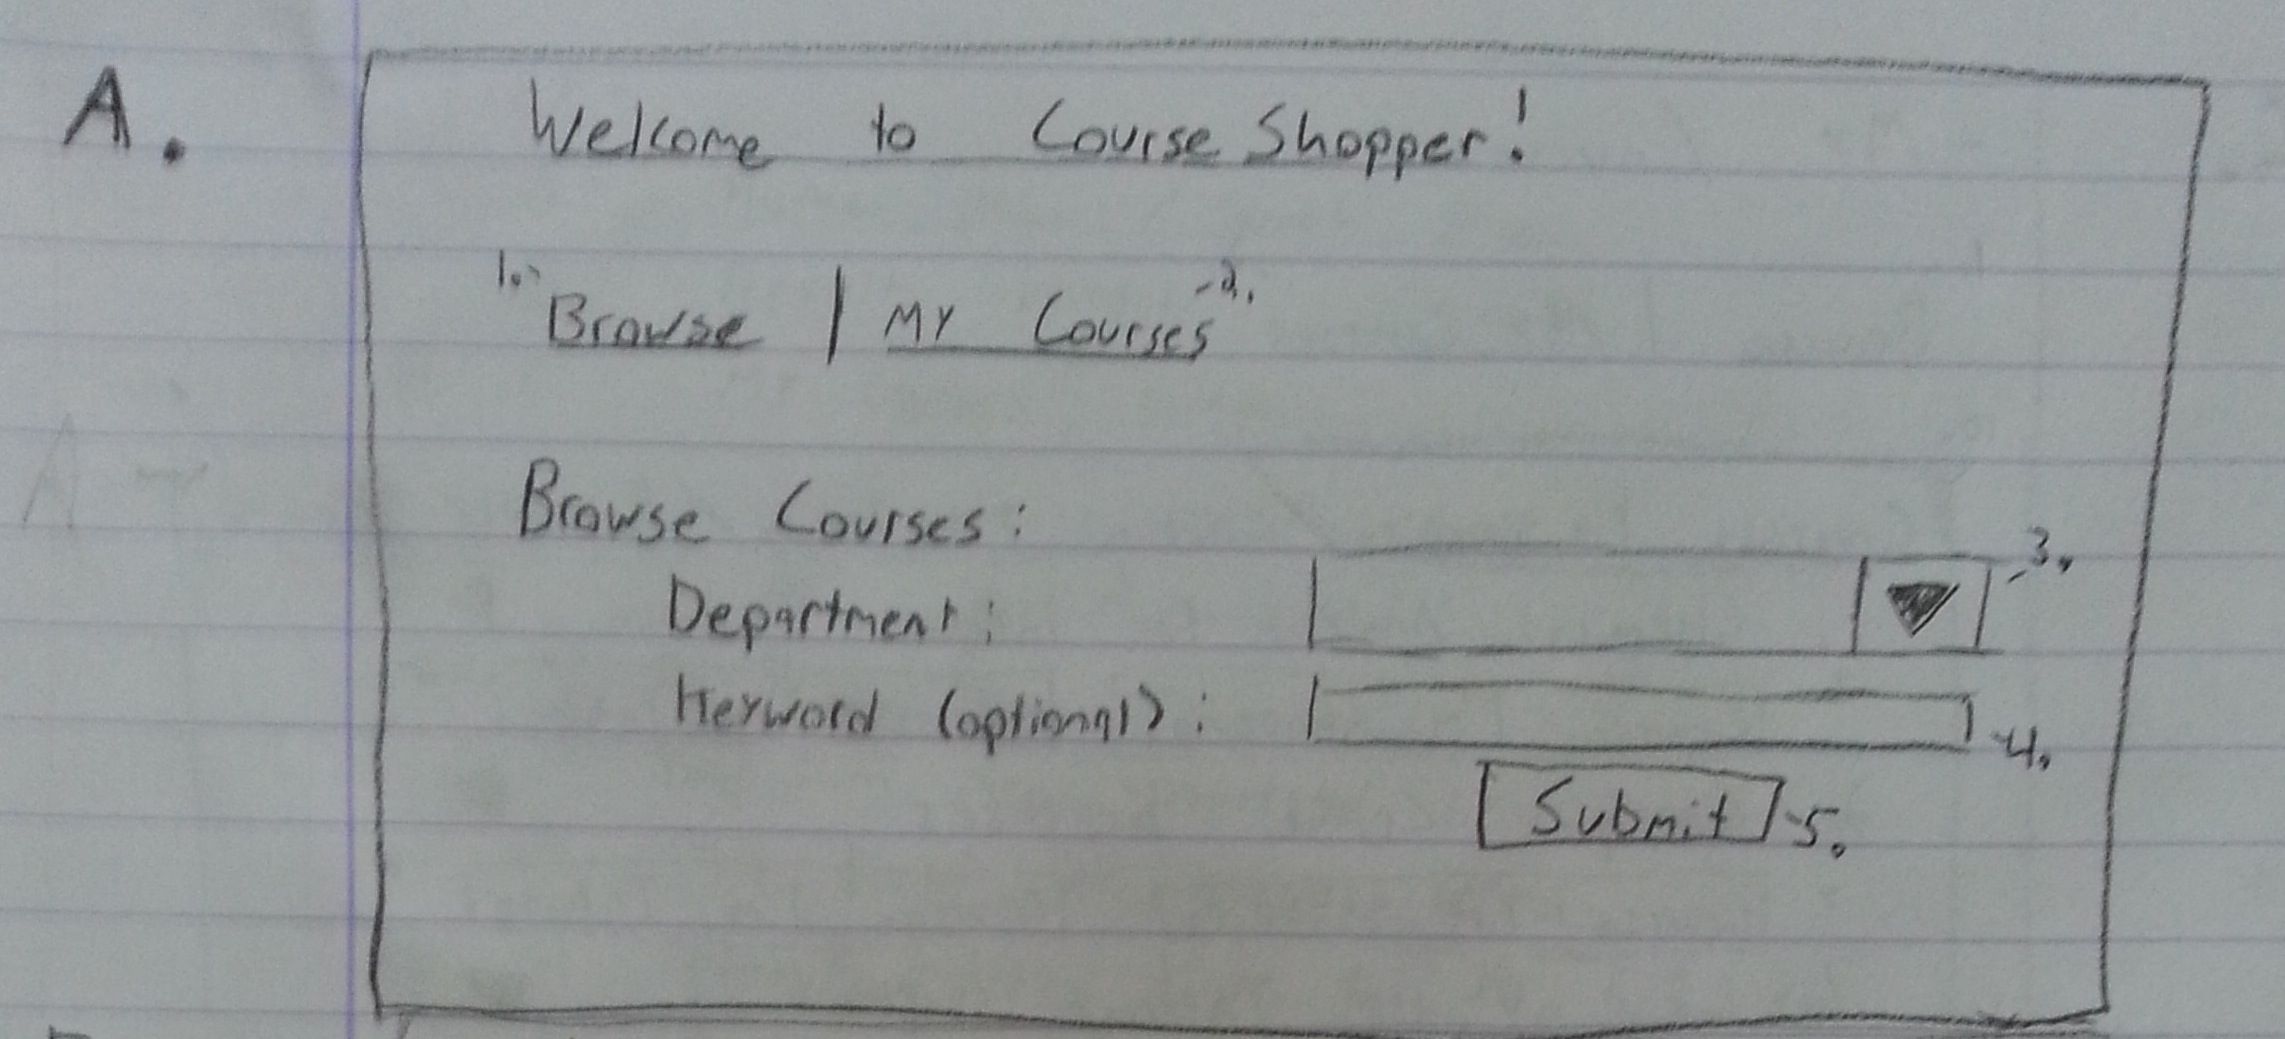 A.
Welcome to Course Shopper!
1. Browse | My Courses -2.
Browse Courses:
Department: -3.
Keyword (optional): -4.
Submit -5.